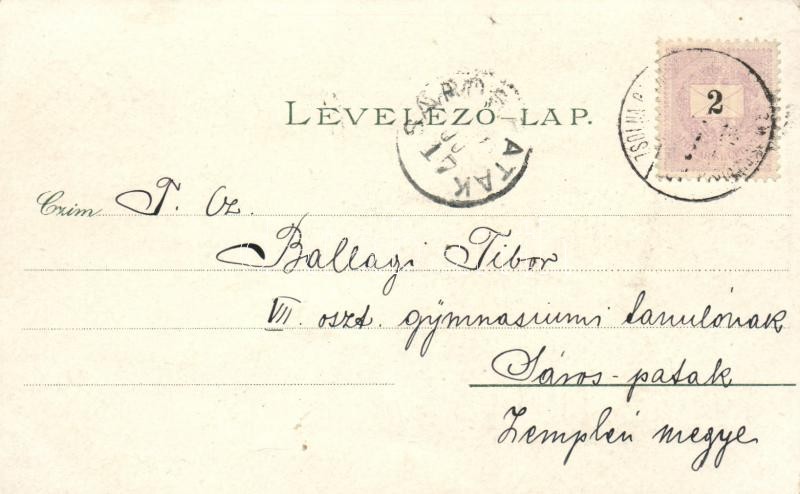 LEVELEZŐ LAP.
2
SÁROSPATAK
Czim T. Cz.
Ballagi Tibor
VII. oszt. gymnasiumi tanulónak
Sáros-patak
Zemplén megye